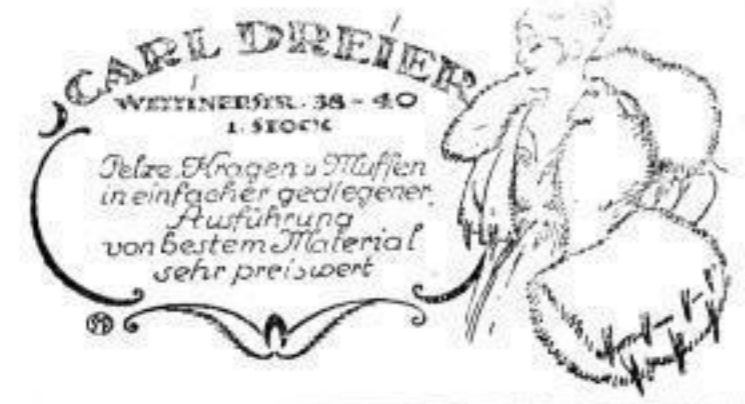 CARL DREIER
WETTINERSTR. 38-40
1. STOCK
Pelze. Kragen u Muffen
in einfacher gediegener
Ausführung
von bestem Material
sehr preiswert